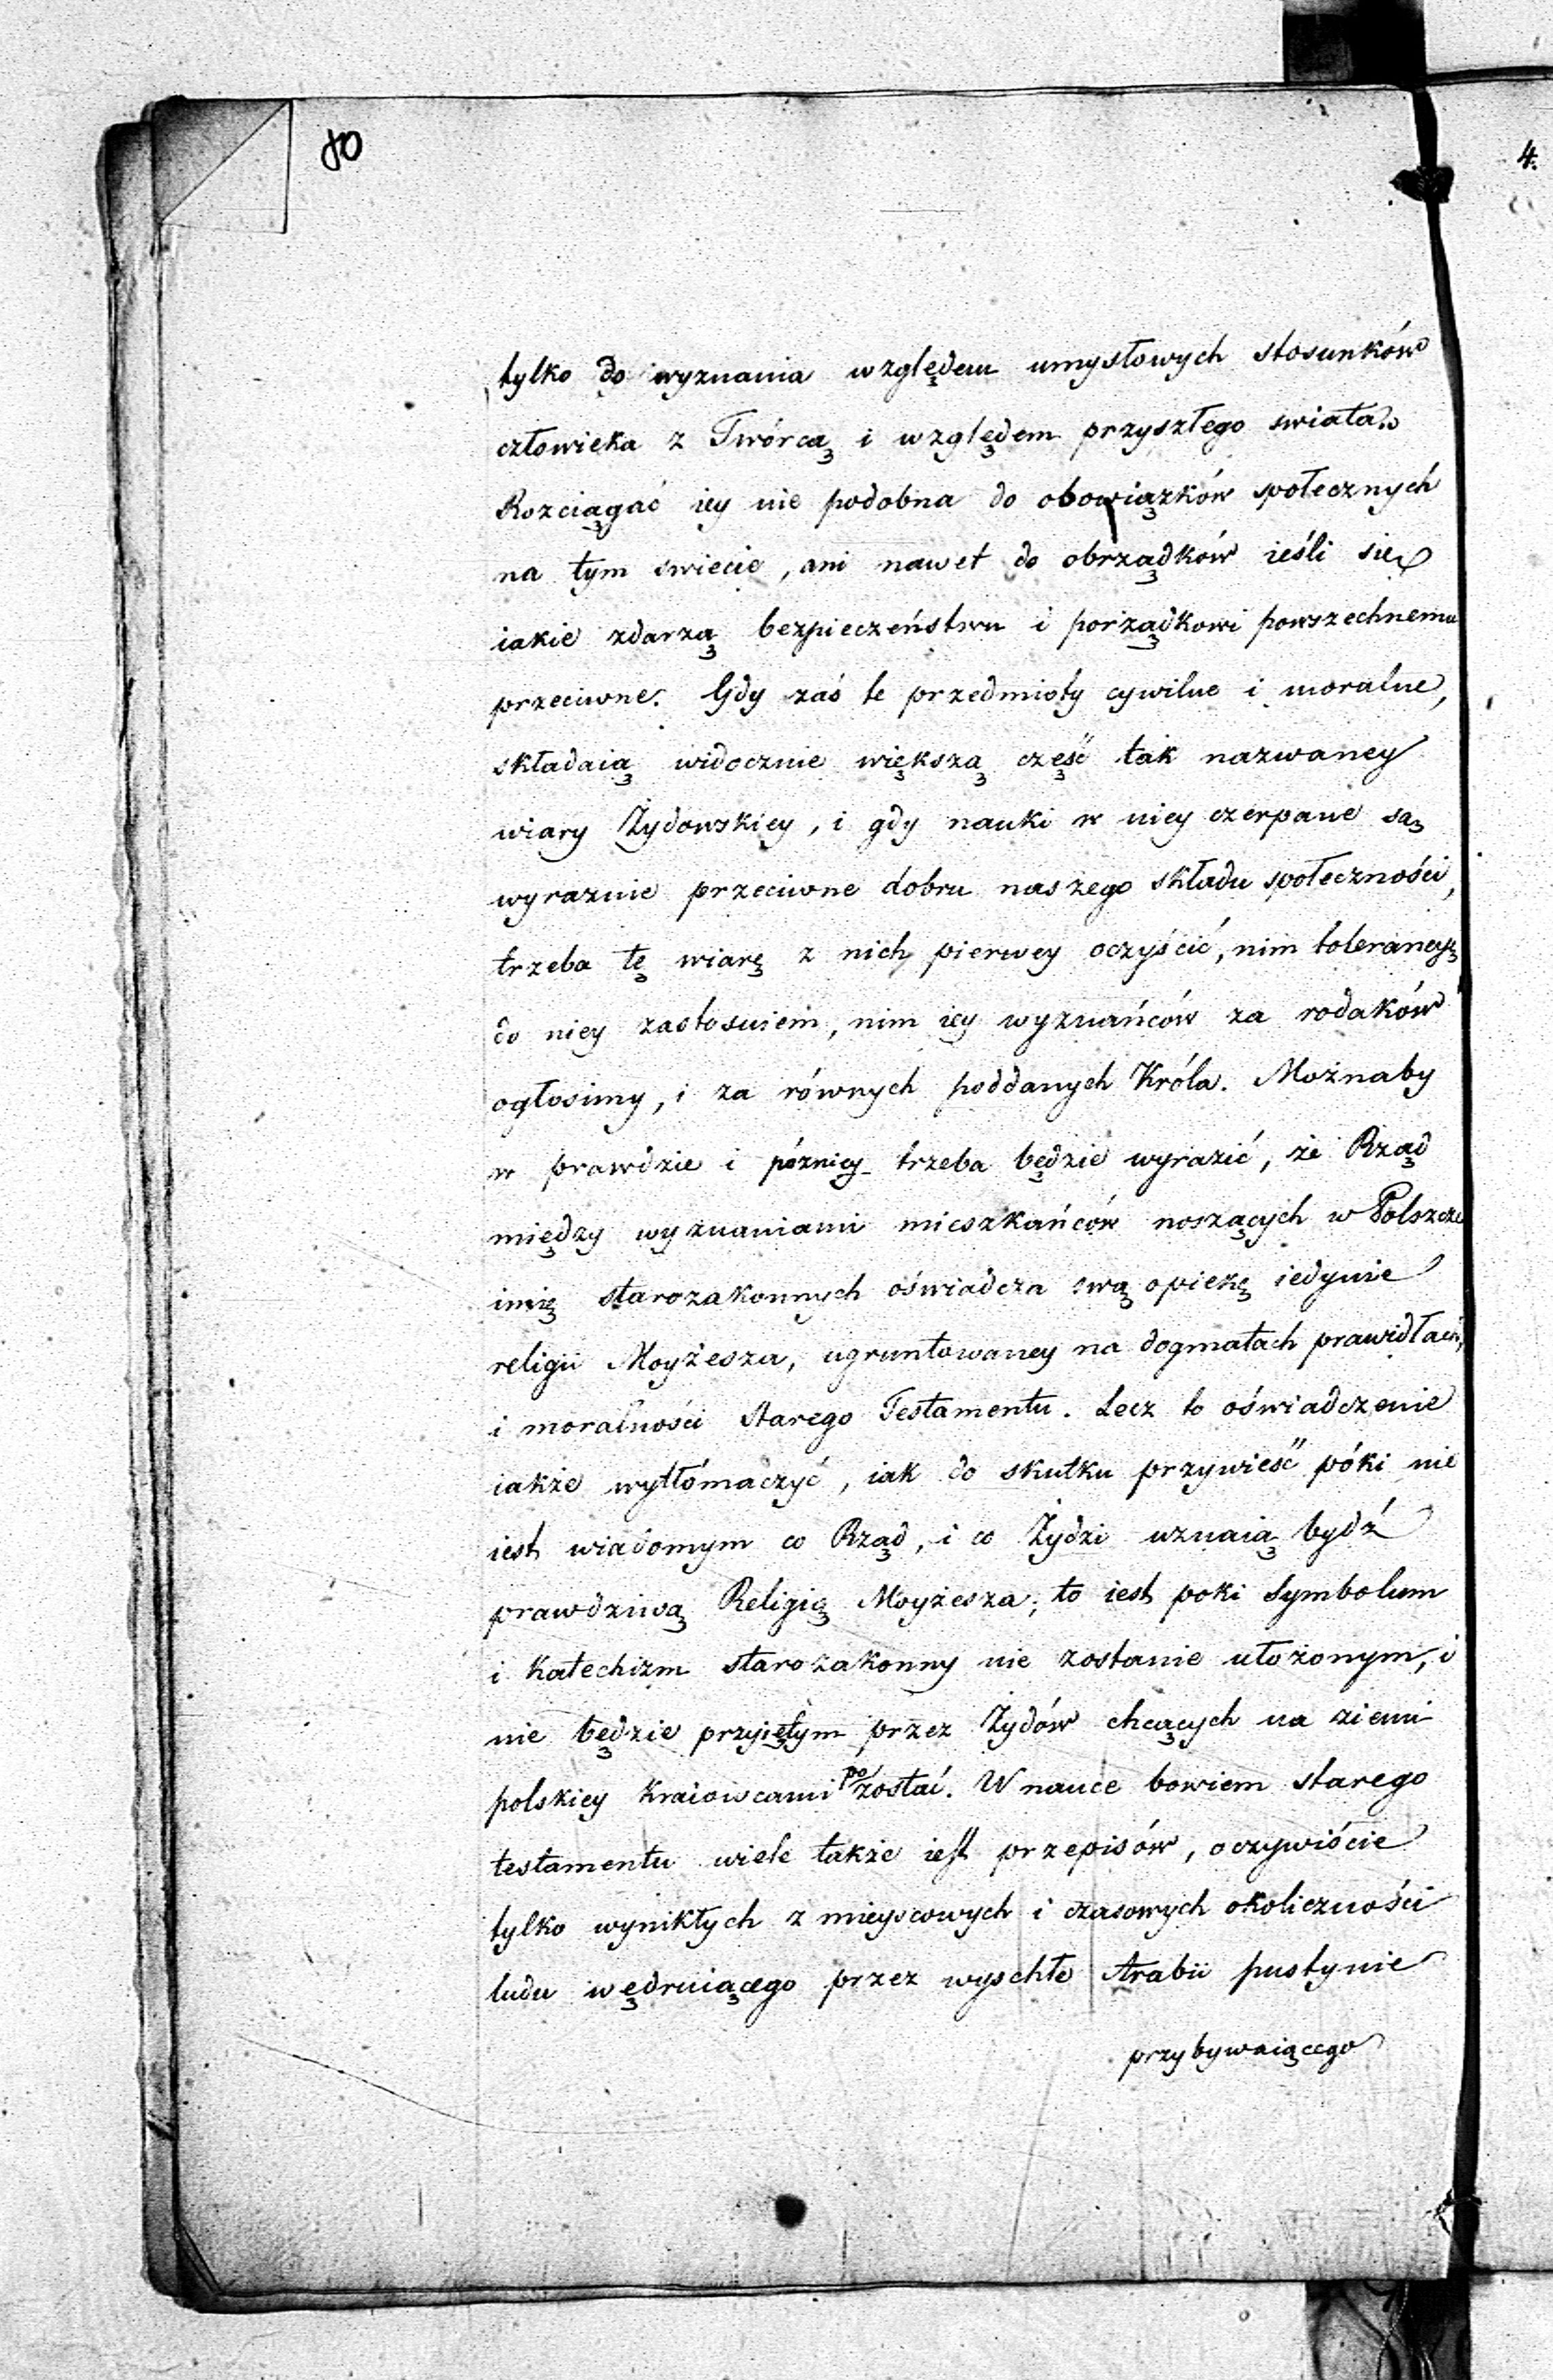 80
4.
tylko do wyznania względem umysłowych stosunków
człowieka z Twórcą i względem przyszłego swiata.
Rozciągać iey nie podobna do obowiązków społecznych
na tym swiecie, ani nawet do obrządków ieśli się
iakie zdarzą bezpieczeństwu i porządkowi powszechnemu
przeciwne. Gdy zaś te przedmioty cywilne i moralne,
składaią widocznie większą część tak nazwaney
wiary Żydowskiey, i gdy nauki w niey czerpane są
wyraznie przeciwne dobru naszego składu społeczności,
trzeba tę wiarę z nich pierwey oczyścić, nim tolerancyą
do niey zastosuiem, nim iey wyznańców za rodaków
ogłosimy, i za równych poddanych Króla. Możnaby
w prawdzie i pózniey trzeba będzie wyrazić, że Rząd
między wyznaniami mieszkańców noszących w Polszcze
imię starozakonnych oświadcza swą opiekę iedynie
religii Moyżesza, ugruntowaney na dogmatach prawidłach,
i moralności starego Testamentu. Lecz to oświadczenie
iakże wytłómaczyć, iak do skutku przywieść póki nie
iest wiadomym co Rząd, i co Żydzi uznaią bydź
prawdziwą Religią Moyżesza; to iest poki Symbolum
i Katechizm starozakonny nie zostanie ułożonym, i
nie będzie przyiętym przez Żydów chcących na ziemi
polskiey kraiowcami pozostać. W nauce bowiem starego
testamentu wiele także iest przepisów, oczywiście
tylko wynikłych z mieyscowych i czasowych okoliczności
ludu wędruiącego przez wyschłe Arabii pustynie
przybywaiącego